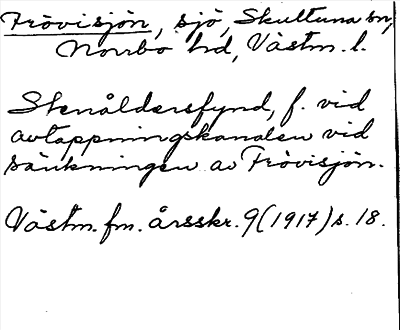 Frövisjön, sjö, Skultuna sn,
Norrbo hd, Västm. l.
Stenåldersfynd, f. vid
avtappningskanalen vid
sänkningen av Frövisjön.
Västm. fm. årsskr. 9 (1917) s. 18.